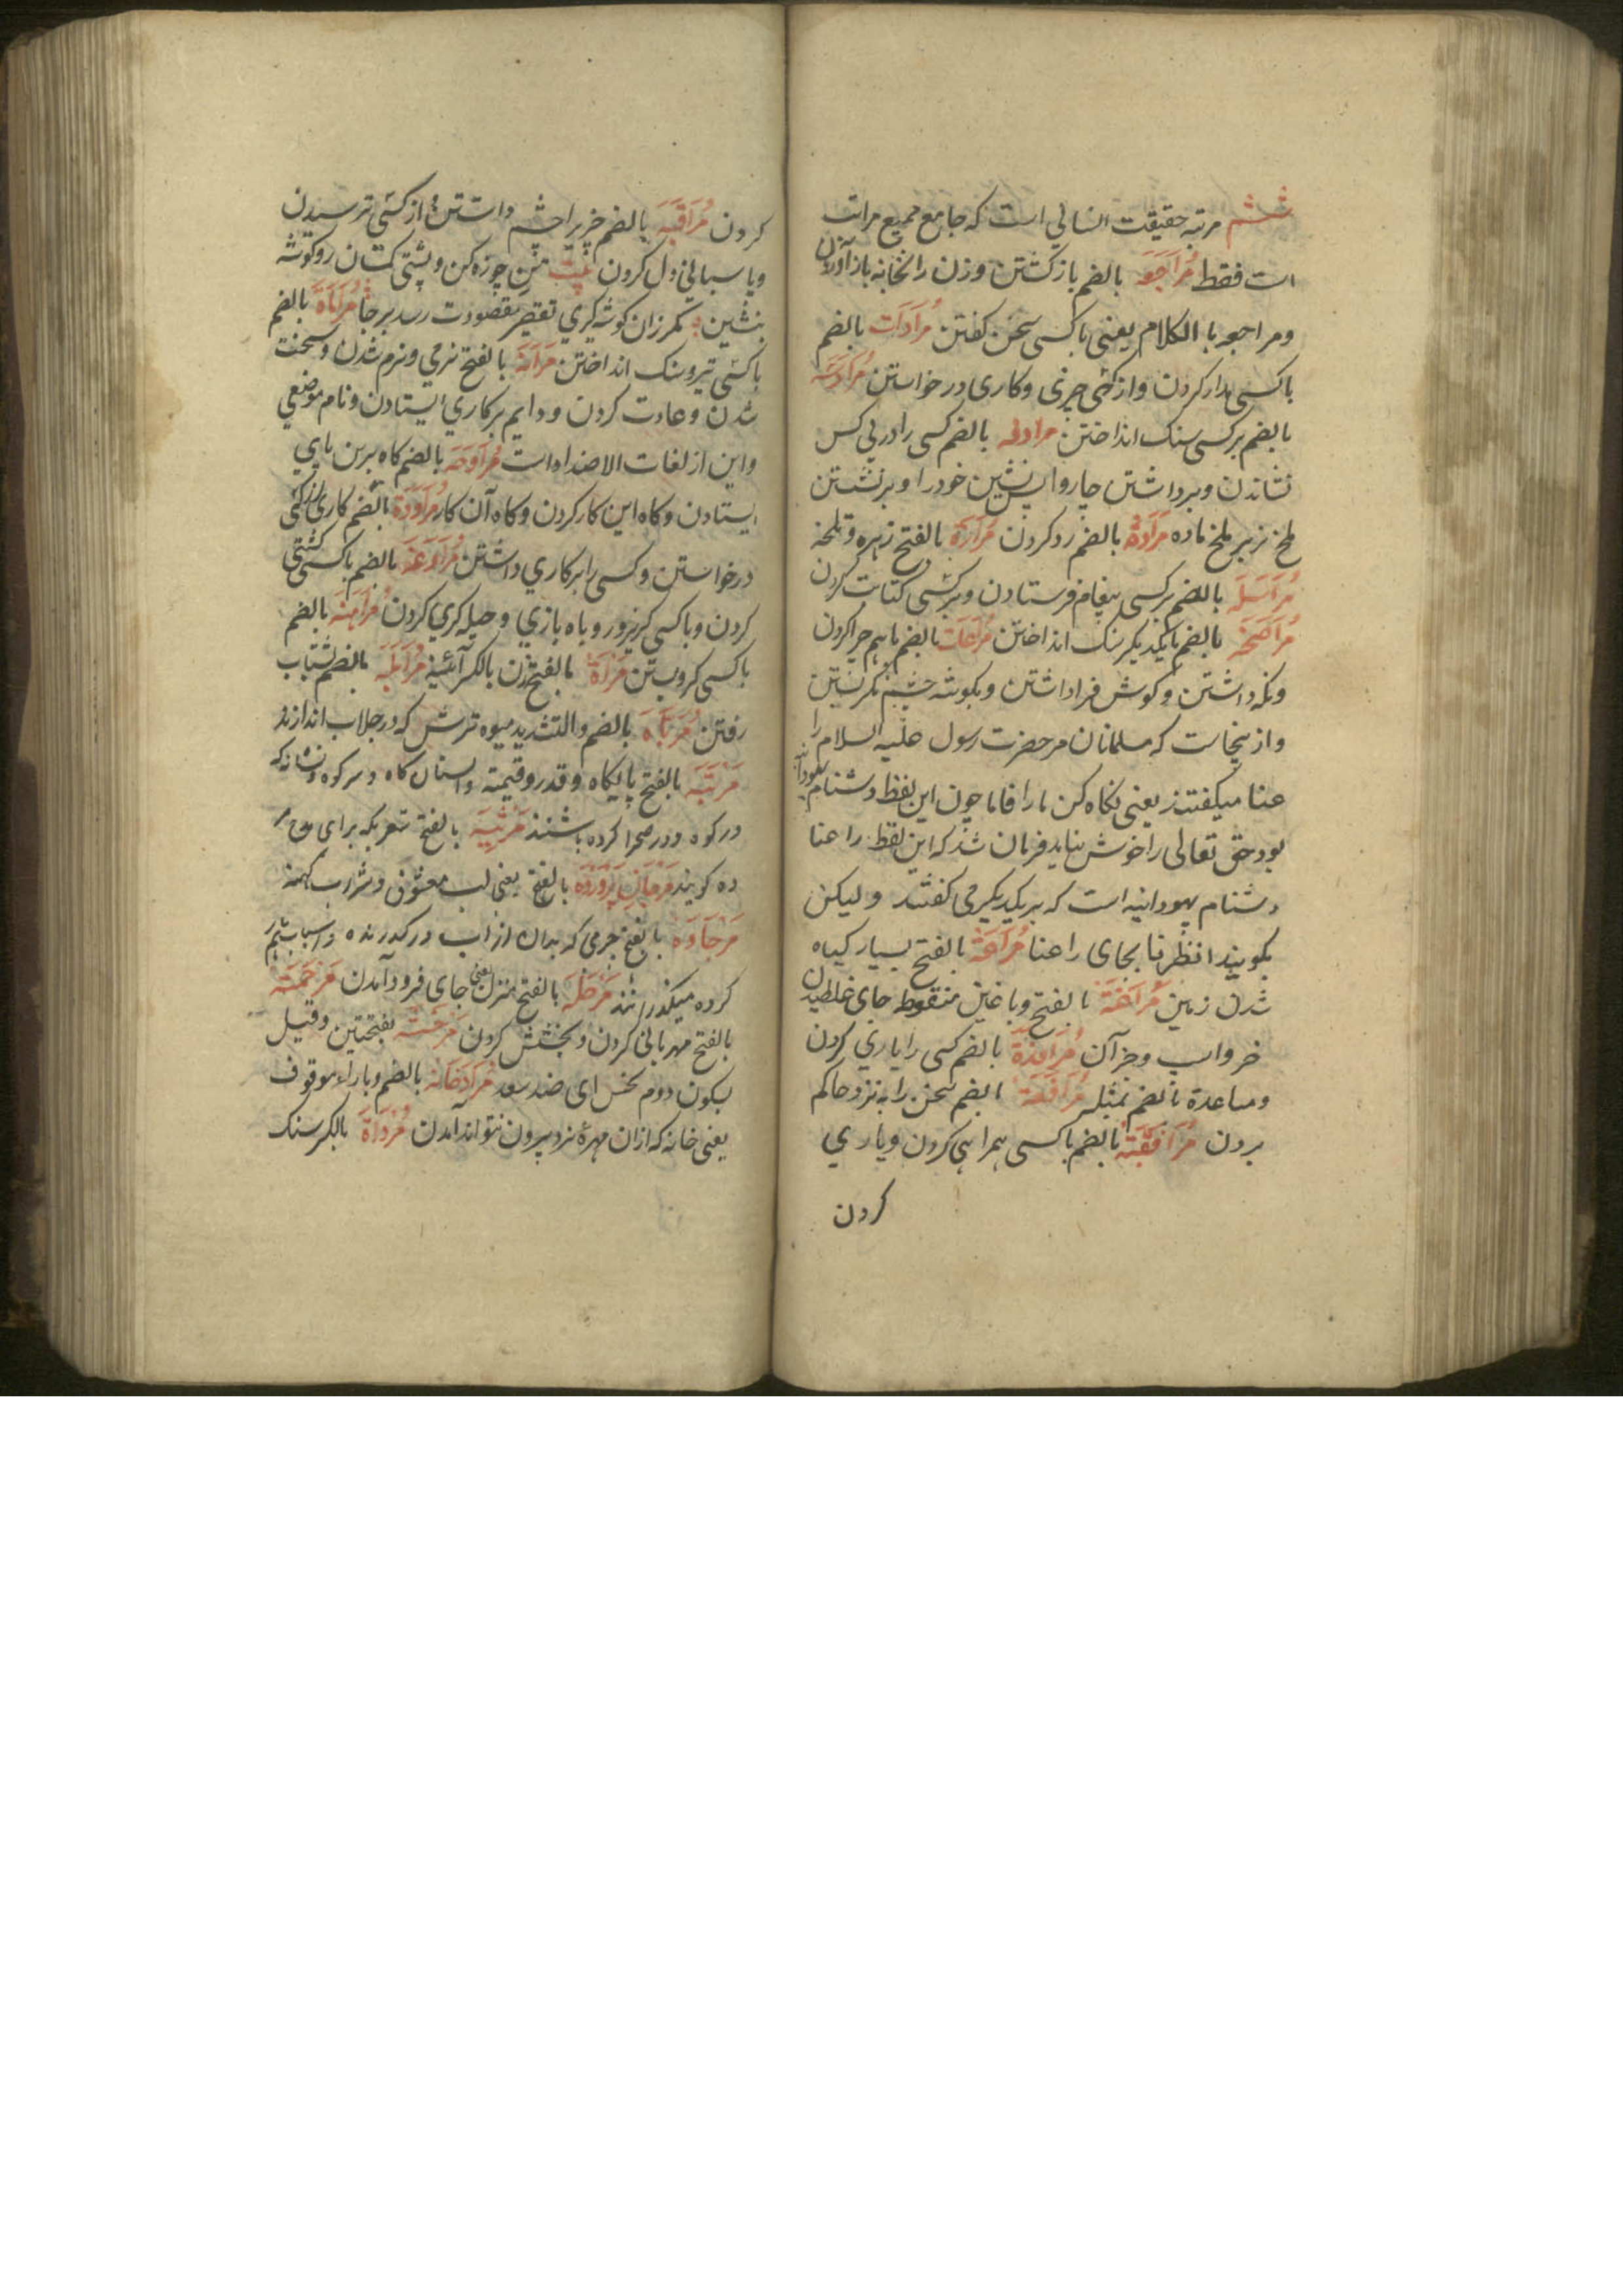 ششم مرتبه حقیقت انسانی است که جامع جمیع مراتب
است فقط مُرَاجَعَه بالضم باز کشتن و زن را بخانه باز آوردن
ومراجعه با الکلام یعنی با کسی سخن کفتن مُرَادَات بالضم
با کسی مدار کردن و از کسی چیزی و کاری در خواستن
بالضم بر کسی سنک انداختن مرادفه بالضم کسی را در پی کس
نشاندن و برداشتن چاروا پس نشین خود را و بر نشستن
ملخ نر بر ملخ ماده مرَادّة بالضم رد کردن مَرَارَة بالفتح زهره و تلخه
مُرَاسَلَه بالضم بر کسی پیغام فرستادن و بر کسی کتابت کردن
بالضم با یکدیکر سنک انداختن مُرَاعَات بالضم با هم چرا کردن
ونکه داشتن و کوش فرا داشتن و بکوشه چشم نکریستن
و از ینجاست که مسلمانان مر حضرت رسول علیه السلام را
عنا میکفتند یعنی نکاه کن ما را فاما چون این لفظ دشنام یهودانیه
بود حق تعالی را خوش نیاید فرمان شد که این لفظ راعنا
دشنام یهودانیه است که بر یکدیکر می کفتند و لیکن
بکویند انظرنا بجای راعنا بالفتح بسیار کیاه
شدن زمین مُرَاغَة بالفتح و با غین منقوط جای غلطیدن
خر و اسب و جز آن مُرَافَدَة بالضم کسی را یاری کردن
ومساعدة بالضم بمثله مُرَافَعَة بالضم سخن را به نزد حاکم
بردن مُرَافَقَتْ بالضم با کسی همراهی کردن و یاری
کردن
کردن مُرَاقَبَه بالضم چیز برا چشم داشتن و از کسی ترسیدن
و پاسبانی دل کردن بیت چوزه کن و پشتی کمان رو کوشه
بنشین مکر زان کوشه کیری مقصودت رسد بر جا مُرَامَاة بالضم
با کسی تیر و سنک انداختن مَرَانَة بالفتح نرمی و نرم شدن و سخت
شدن و عادت کردن و دایم بر کاری ایستادن و نام موضعی
و این از لغات الاضداد است مُرَاوَحَه بالضم کاه برین پای
ایستادن و کاه این کار کردن و کاه آن کار مُرَاوَدَة بالضم کاری از کسی
در خواستن و کسی را بر کاری داشتن مُرَاوَغَه بالضم با کسی کشتی
کردن و با کسی کریز و روباه بازی و حیله کری کردن مُرَاهَنَه بالضم
با کسی کرو بستن مَرْأة بالفتح زن بالکسر آئینه بالضم شتاب
رفتن مُرَبَّاه بالضم والتشدید میوه ترش که در جلاب اندازند
مَرْتَبَه بالفتح پایکاه و قدر و قیمته و استان کاه و سر کوه و نشانه که
در کوه و در صحرا کرده باشند مَرْثِیَه بالفتح شعریکه برای
ده کویند مَرْجَانِ پَرْوَرْدَه بالفتح یعنی لب معشوق و شراب کهنه
بالفتح چرمی که بدان از آب در کدرنده و اسباب هم
کرده میکذرانند مَرْحَلَه بالفتح منزل یعنی جای فرود آمدن مَرْحَمَتْ
بالفتح مهربانی کردن و بخشش کردن بفتحتین وقیل
بسکون دوم نحس ای ضد سعد بالضم و با راء موقوف
یعنی خانه که از آن مهرۀ نرد بیرون نتواند آمدن مُرْدَاة بالکسر سنک